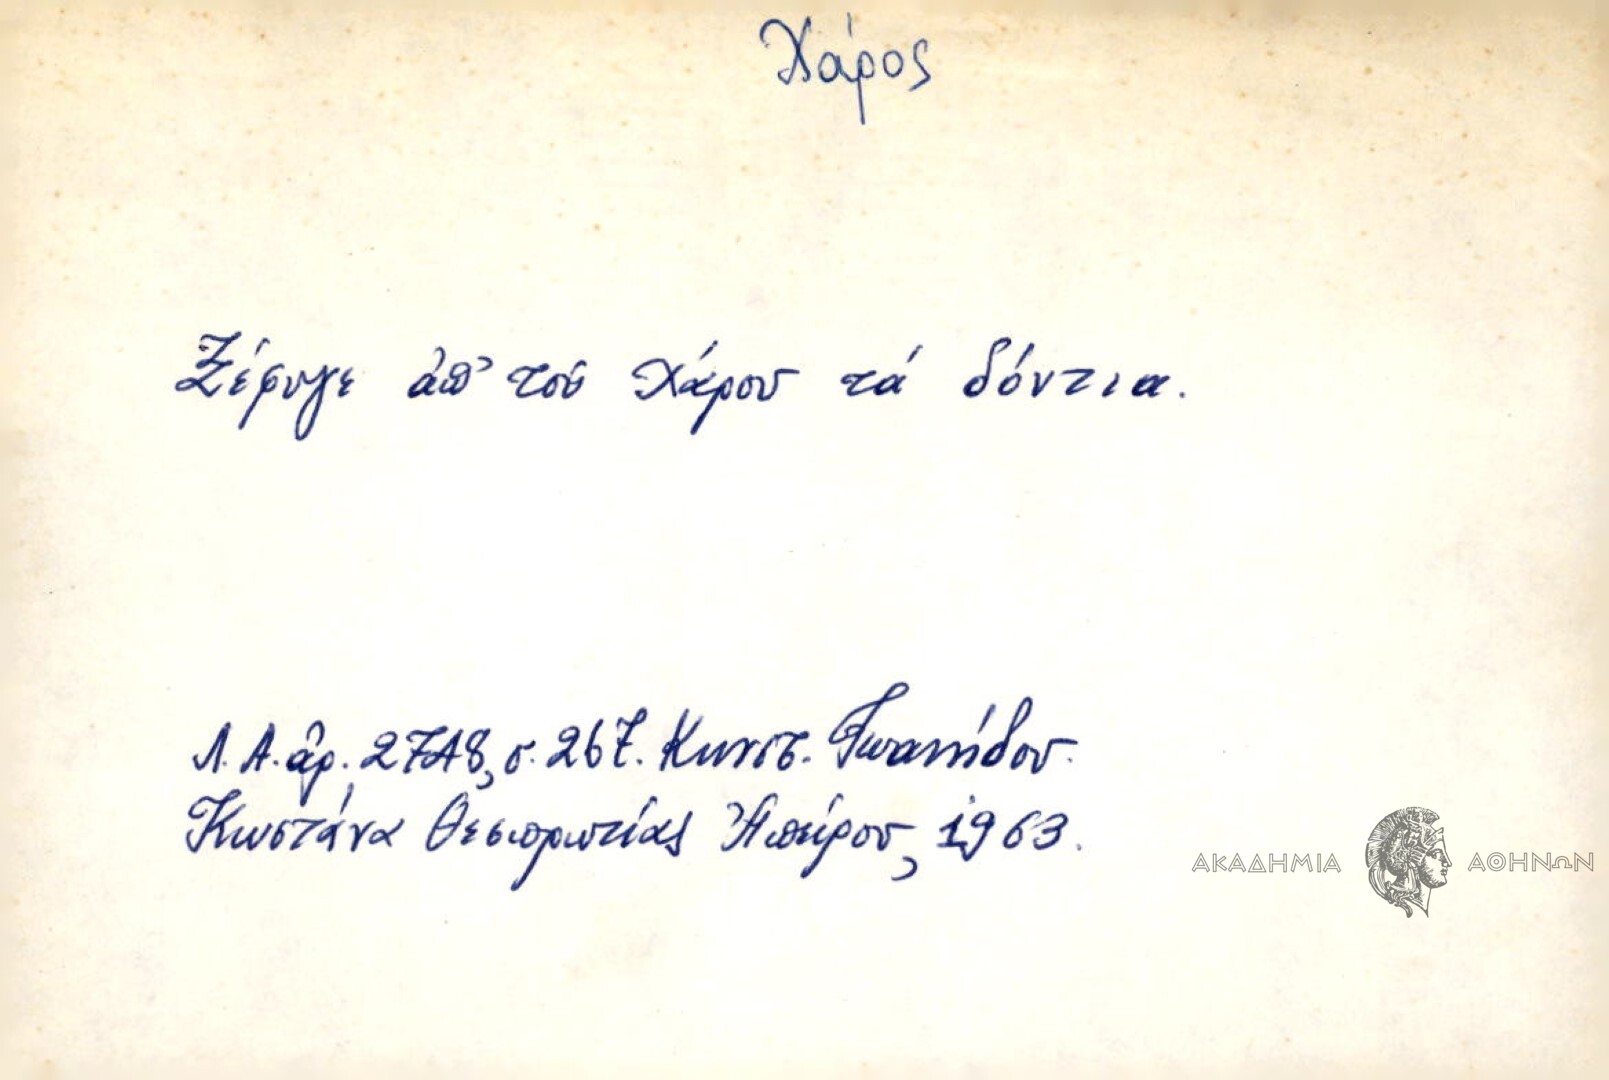 Χάρος
Ξέφυγε ἀπ' τοῦ Χάρου τά δόντια.
Λ. Α. ἀρ. 2748, σ. 267. Κωνστ. Ἰωαννίδου.
Κωστάνα Θεσπρωτίας Ἠπείρου, 1963.
ΑΚΑΔΗΜΙΑ ΑΘΗΝΩΝ